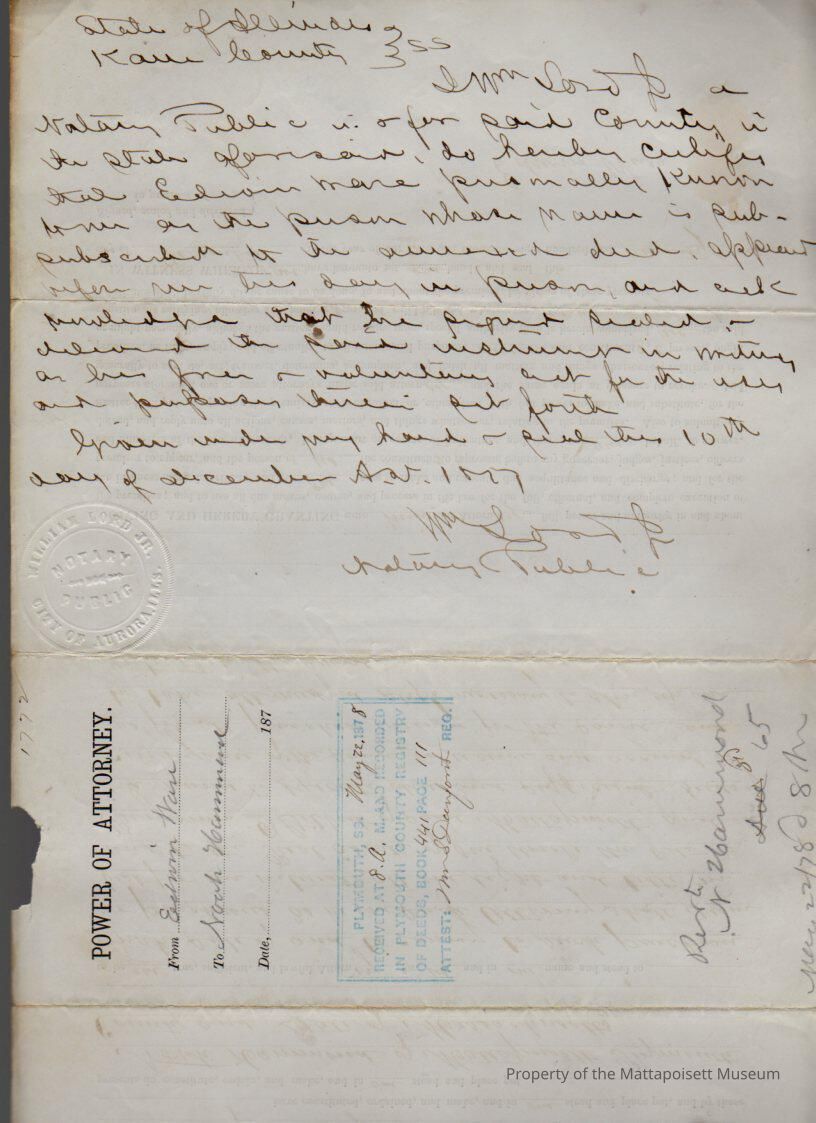 State of Illinois
Kane County } SS
I Wm Lord Jr a
Notary Public in & for said County in
the state aforesaid, do hereby certify
that Edwin Ware personally known
to me as the person whose name is sub-
subscribed to the annexed deed, appeared
before me this day in person, and ack
nowledged that he signed sealed &
delivered the said instrument in writing
as his free & voluntary act for the uses
and purposes therein set forth
Given under my hand & seal this 10th
day of December A.D. 1877
Wm Lord Jr
Notary Public
WILLIAM LORD JR.
NOTARY
PUBLIC
CITY OF AURORA, ILLS.
POWER OF ATTORNEY.
From Edwin Ware
To Noah Hammond
Date, 187
PLYMOUTH, SS. May 22, 1878
RECEIVED AT 8. A. M. AND RECORDED
IN PLYMOUTH COUNTY REGISTRY
OF DEEDS, BOOK 441 PAGE 111
ATTEST: Wm S Danforth REG.
N Hammond
65
May 22/78 8 AM
Property of the Mattapoisett Museum